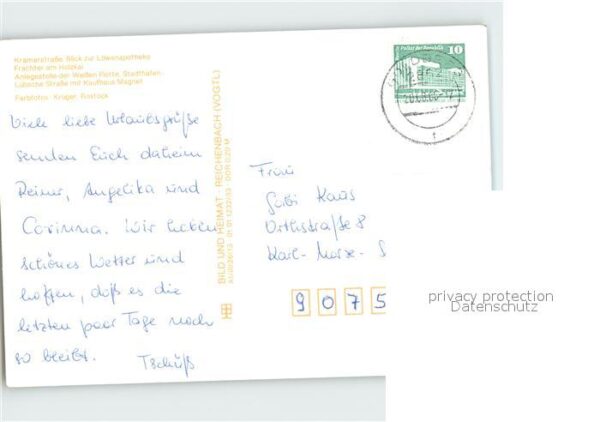 Kramerstraße: Blick zur Löwenapotheke
Frachter am Holzkai
Anlegestelle der Weißen Flotte, Stadthafen
Lübsche Straße mit Kaufhaus Magnet
Farbfotos: Krüger, Rostock
Viele liebe Urlaubsgrüße
senden Euch daheim
Reiner, Angelika und
Corinna. Wir haben
schönes Wetter und
hoffen, daß es die
letzten paar Tage noch
so bleibt.
Tschüß
BILD UND HEIMAT REICHENBACH (VOGTL)
DDR 0,20 M
Palast der Republik 10
Frau
Gabi Kaus
Orthstraße 8
Karl-Marx-S
9075
privacy protection
Datenschutz